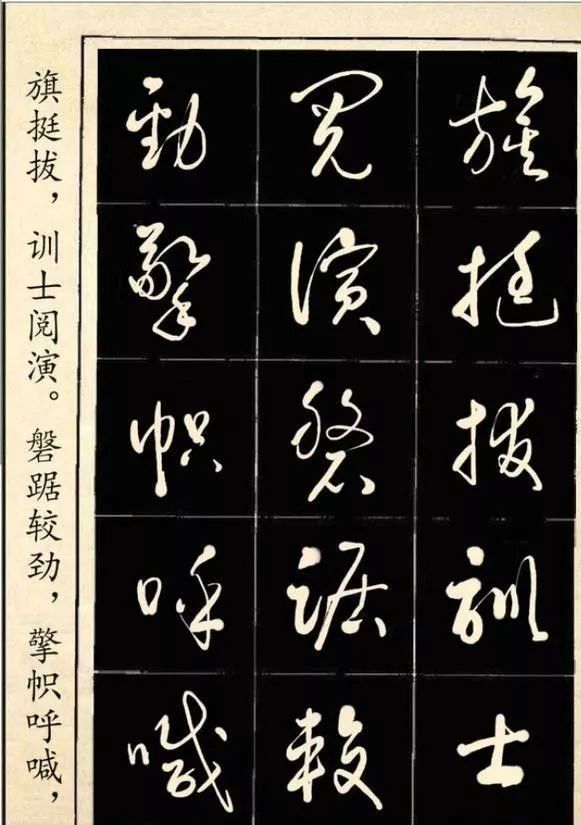 旗挺拔，训士阅演。磐踞较劲，擎帜呼喊，
旗挺拔訓士
閱演磐踞較
勁擎帜呼喊